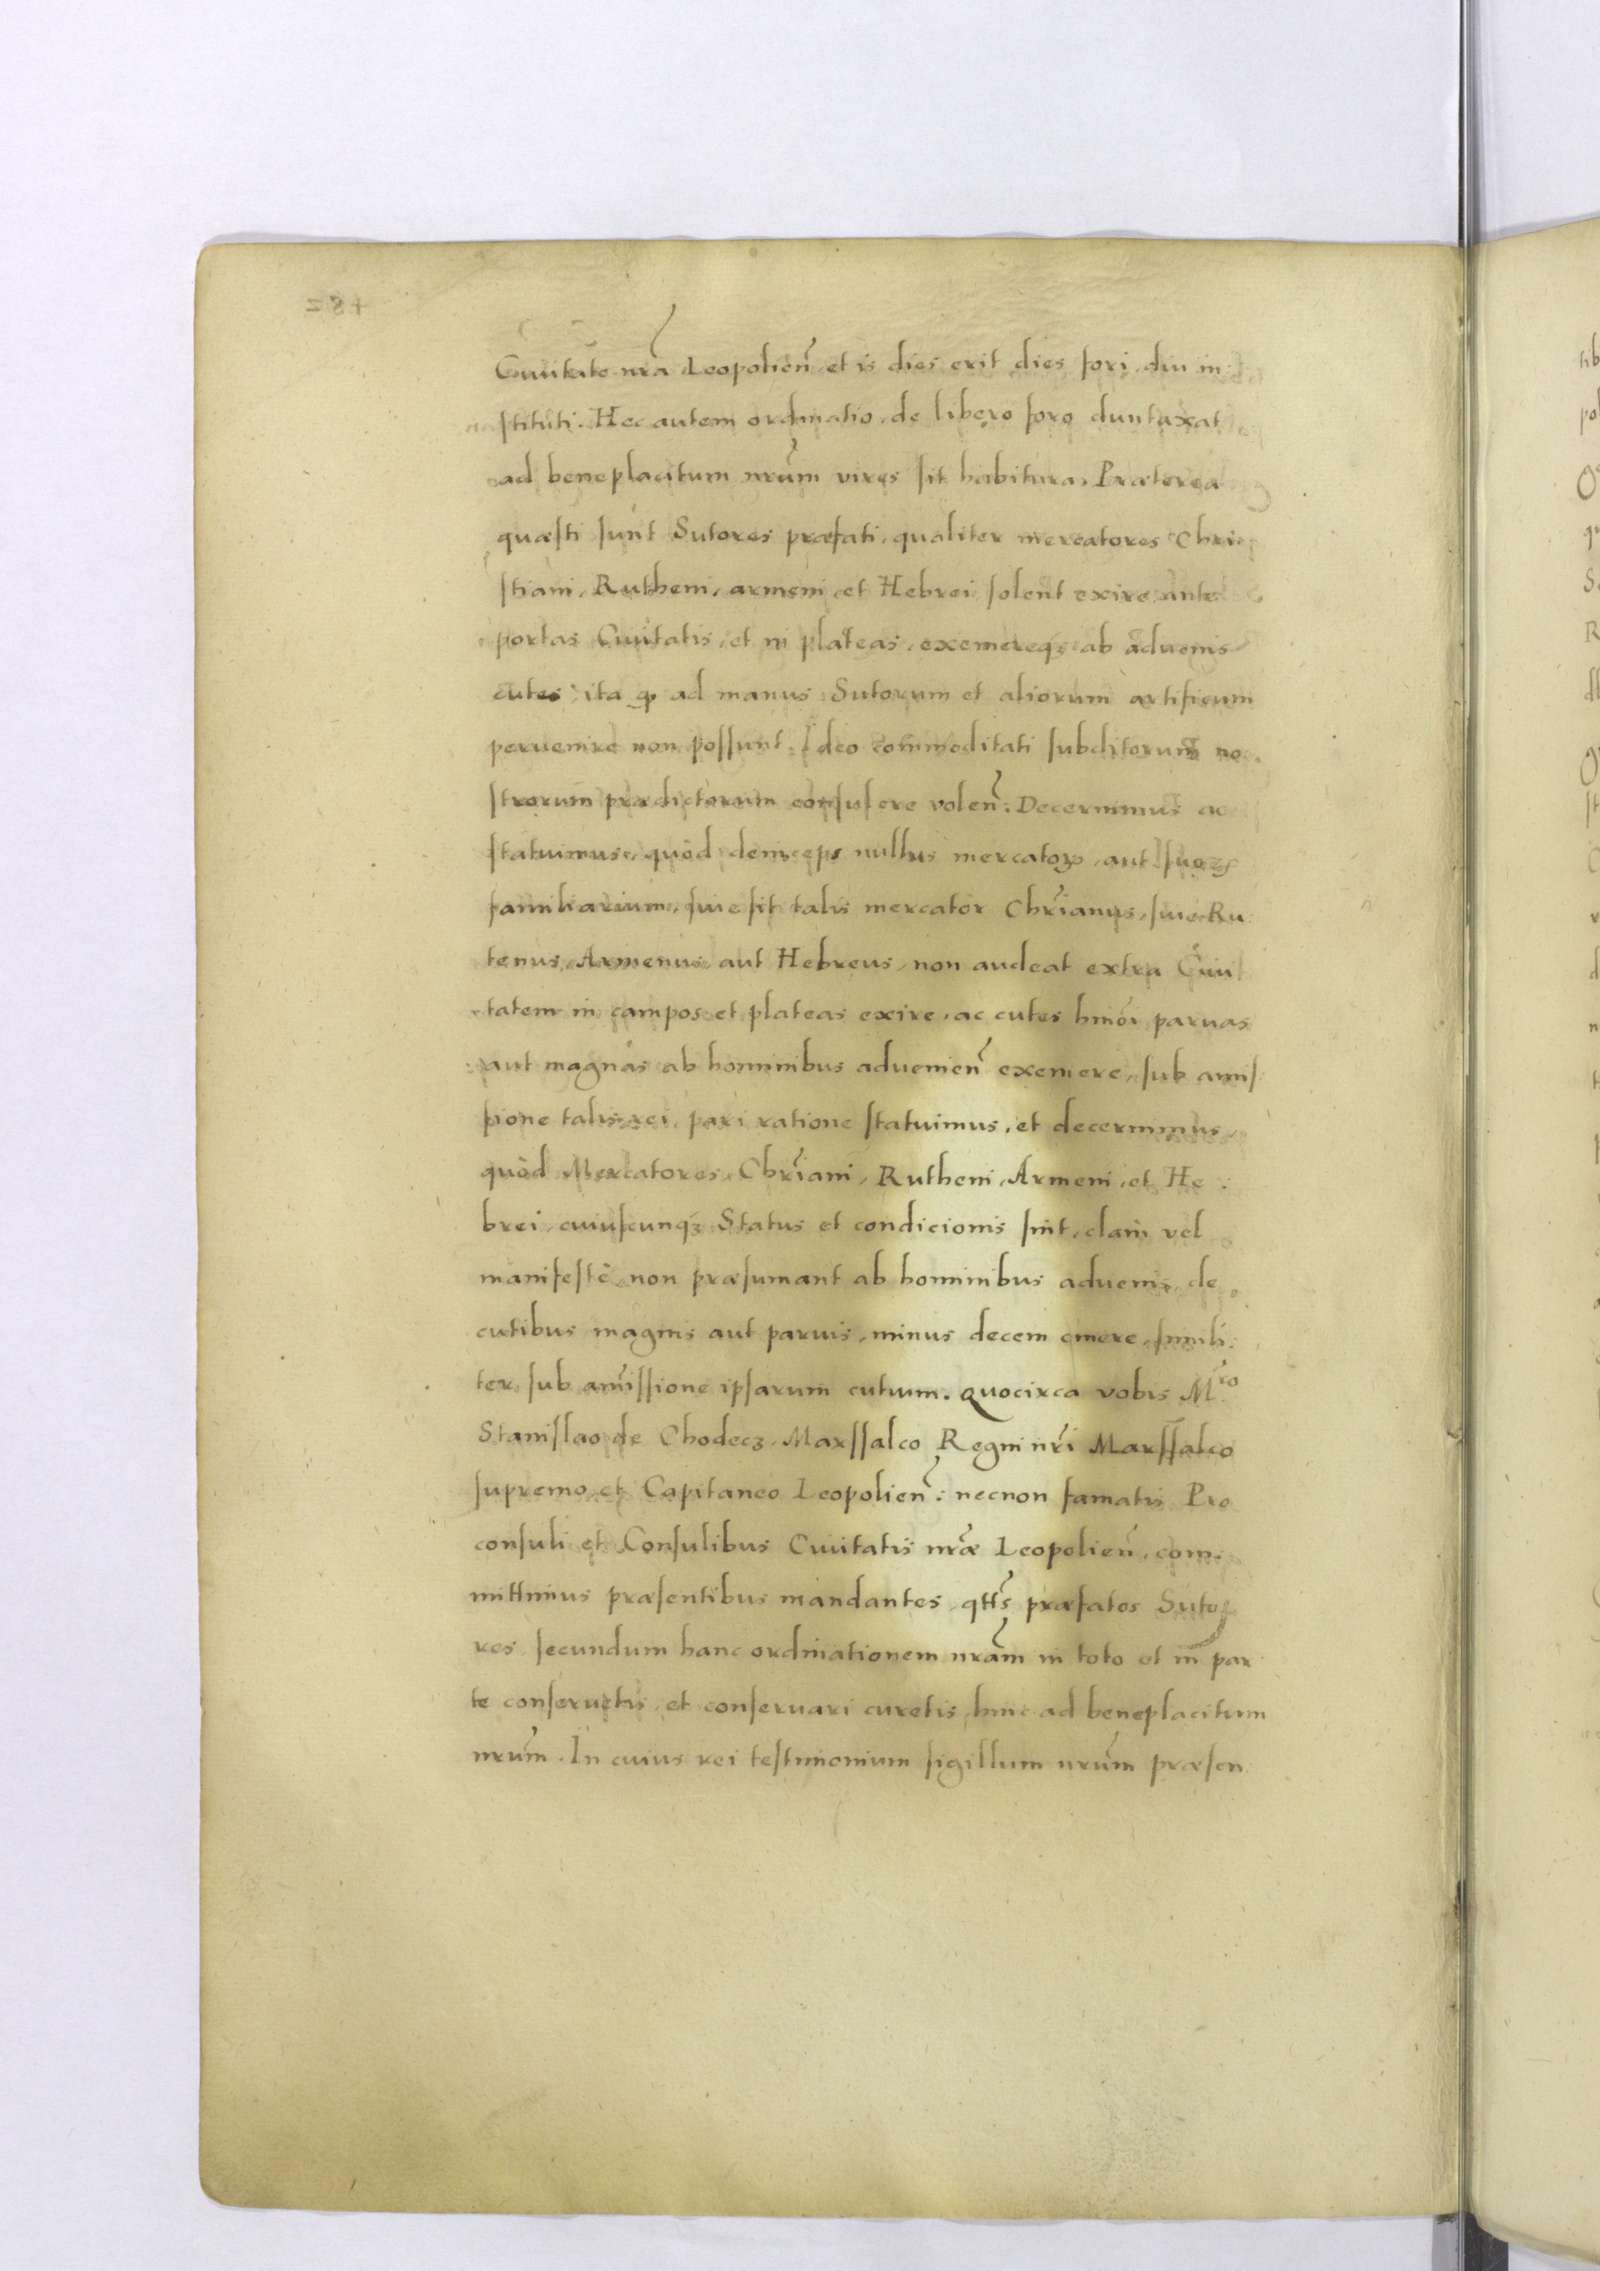 Ciuitate nr̃a Leopolien̄ et is dies erit dies fori, diu in
stituti. Hec autem ordinatio, de libero foro duntaxat
ad beneplacitum nrũm vires sit habitura. Præterea
quæsti sunt Sutores præfati, qualiter mercatores Chri
stiani, Rutheni, armeni, et Hebrei solent exire ante
portas Ciuitatis, et in plateas, exemereqꝫ ab aduenis
cutes ita ꝙ ad manus Sutorum et aliorum artificum
peruenire non possunt. Ideo commoditati subditorum no
strorum prædictorum consulere volen̄: Decernimus ac
statuimus, quòd deinceps nullus mercatoꝝ, aut suoꝝ
familiarium, siue sit talis mercator Chr̃ianus, siue Ru
tenus, Armenus, aut Hebreus, non audeat extra Ciui
tatem in campos et plateas exire, ac cutes hmõi paruas
aut magnas ab hominibus aduenien̄ exemere, sub amis
sione talis rei, pari ratione statuimus, et decernimus,
quòd Mercatores, Chr̃iani, Rutheni, Armeni, et He:
brei, cuiuscunqꝫ Status et condicionis sint, clam vel
manifestè, non præsumant ab hominibus aduenis, de
cutibus magnis aut paruis, minus decem emere, simili:
ter, sub amissione ipsarum cutium. Quocirca vobis M^{co}
Stanislao de Chodecz, Marssalco Regni nr̃i Marssalco
supremo, et Capitaneo Leopolien̄: necnon famatis Pro
consuli et Consulibus Ciuitatis nr̃æ Leopolien̄, com:
mittimus præsentibus mandantes, qtt̃s præfatos Suto
res secundum hanc ordinationem nrãm in toto et in par
te conseruetis, et conseruari curetis, hinc ad beneplacitum
nrũm. In cuius rei testimonium sigillum nrũm præsen